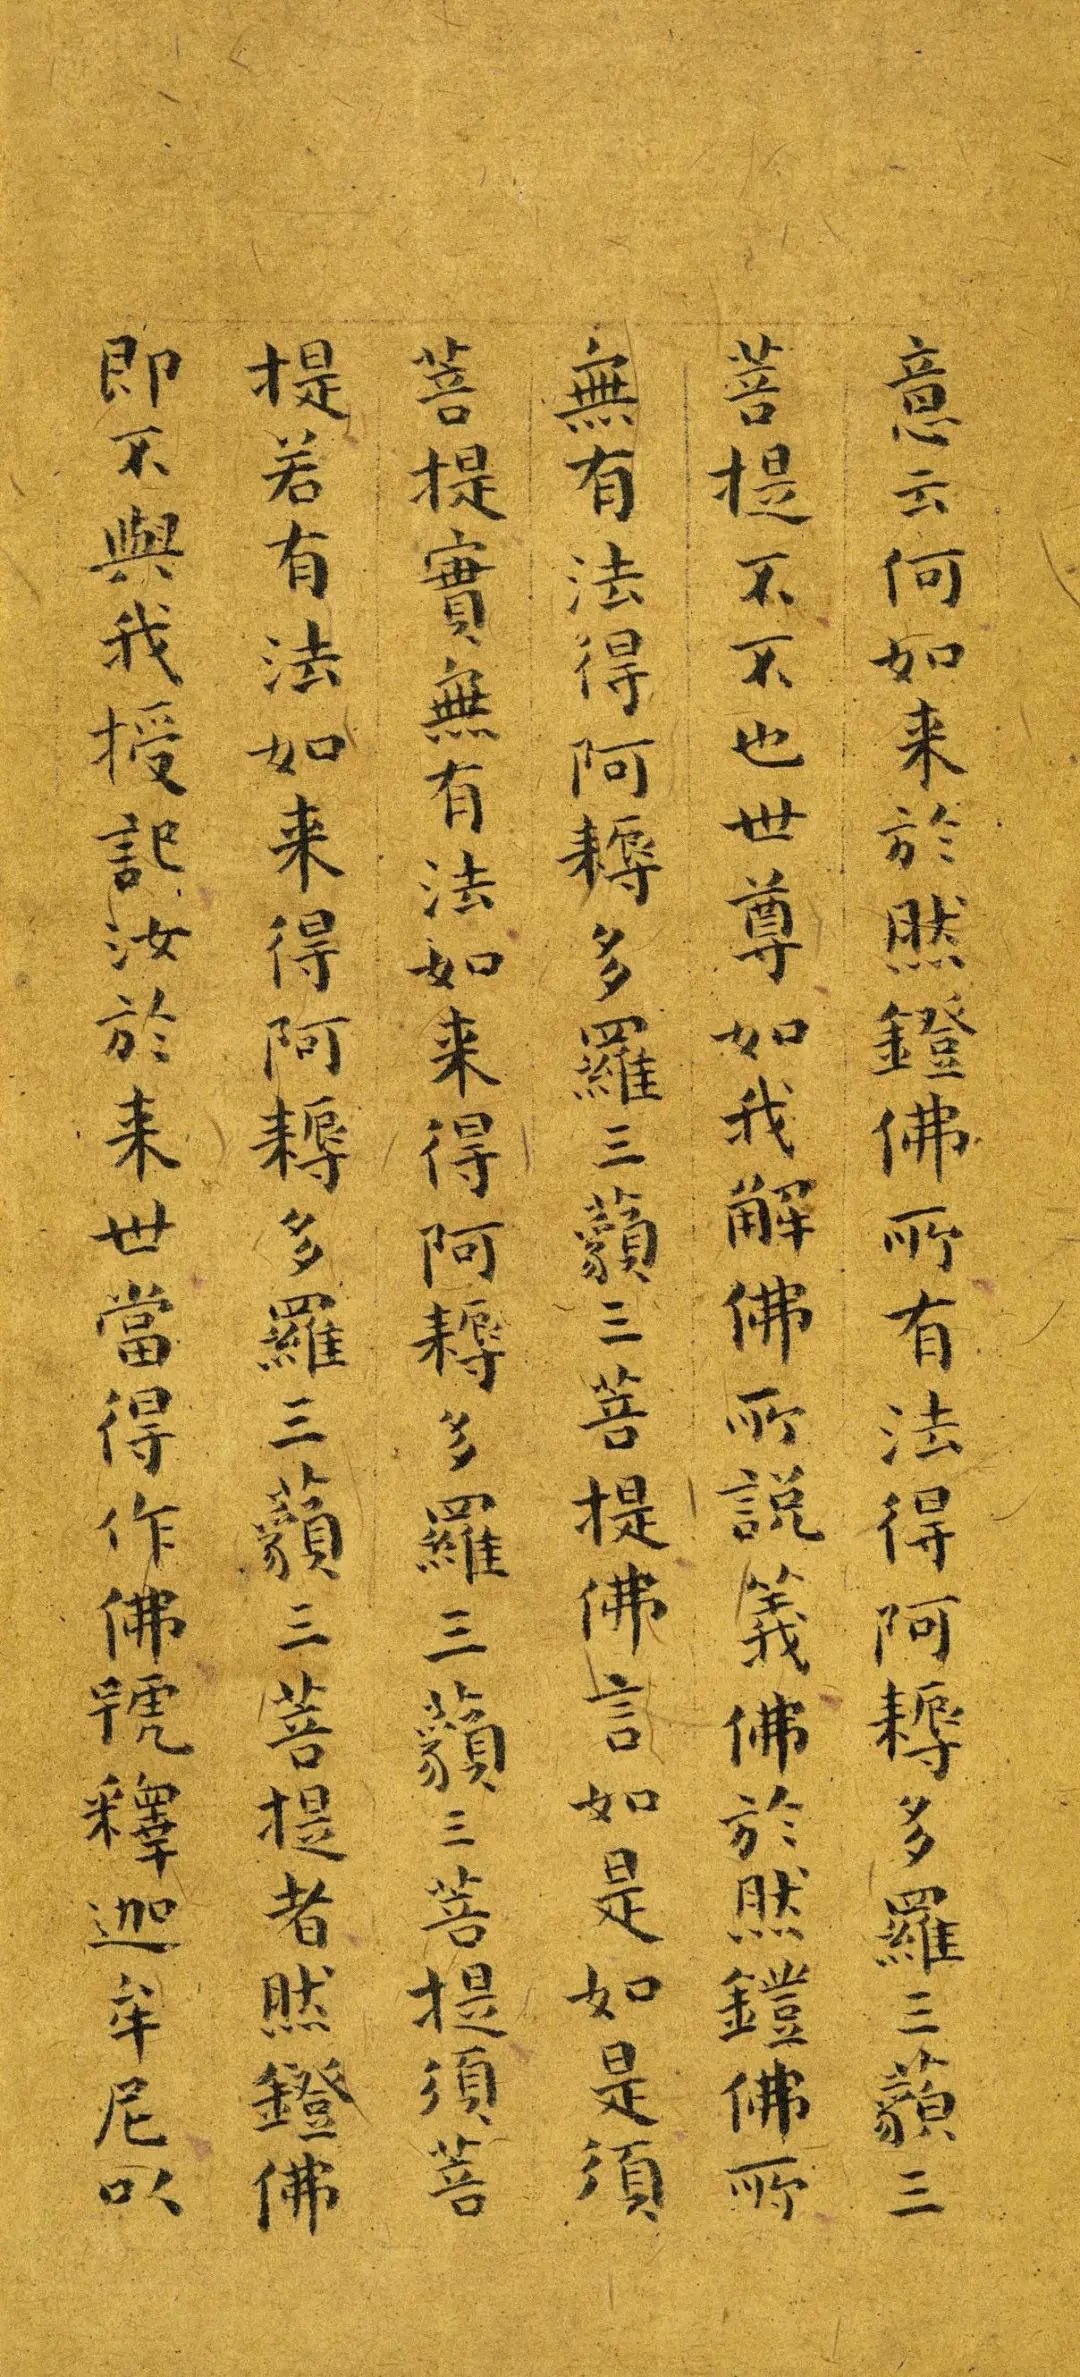 意云何如来於然鐙佛所有法得阿耨多羅三藐三
菩提不不也世尊如我解佛所說義佛於然鐙佛所
無有法得阿耨多羅三藐三菩提佛言如是如是須
菩提實無有法如来得阿耨多羅三藐三菩提須菩
提若有法如来得阿耨多羅三藐三菩提者然鐙佛
即不與我授記汝於来世當得作佛號釋迦牟尼以